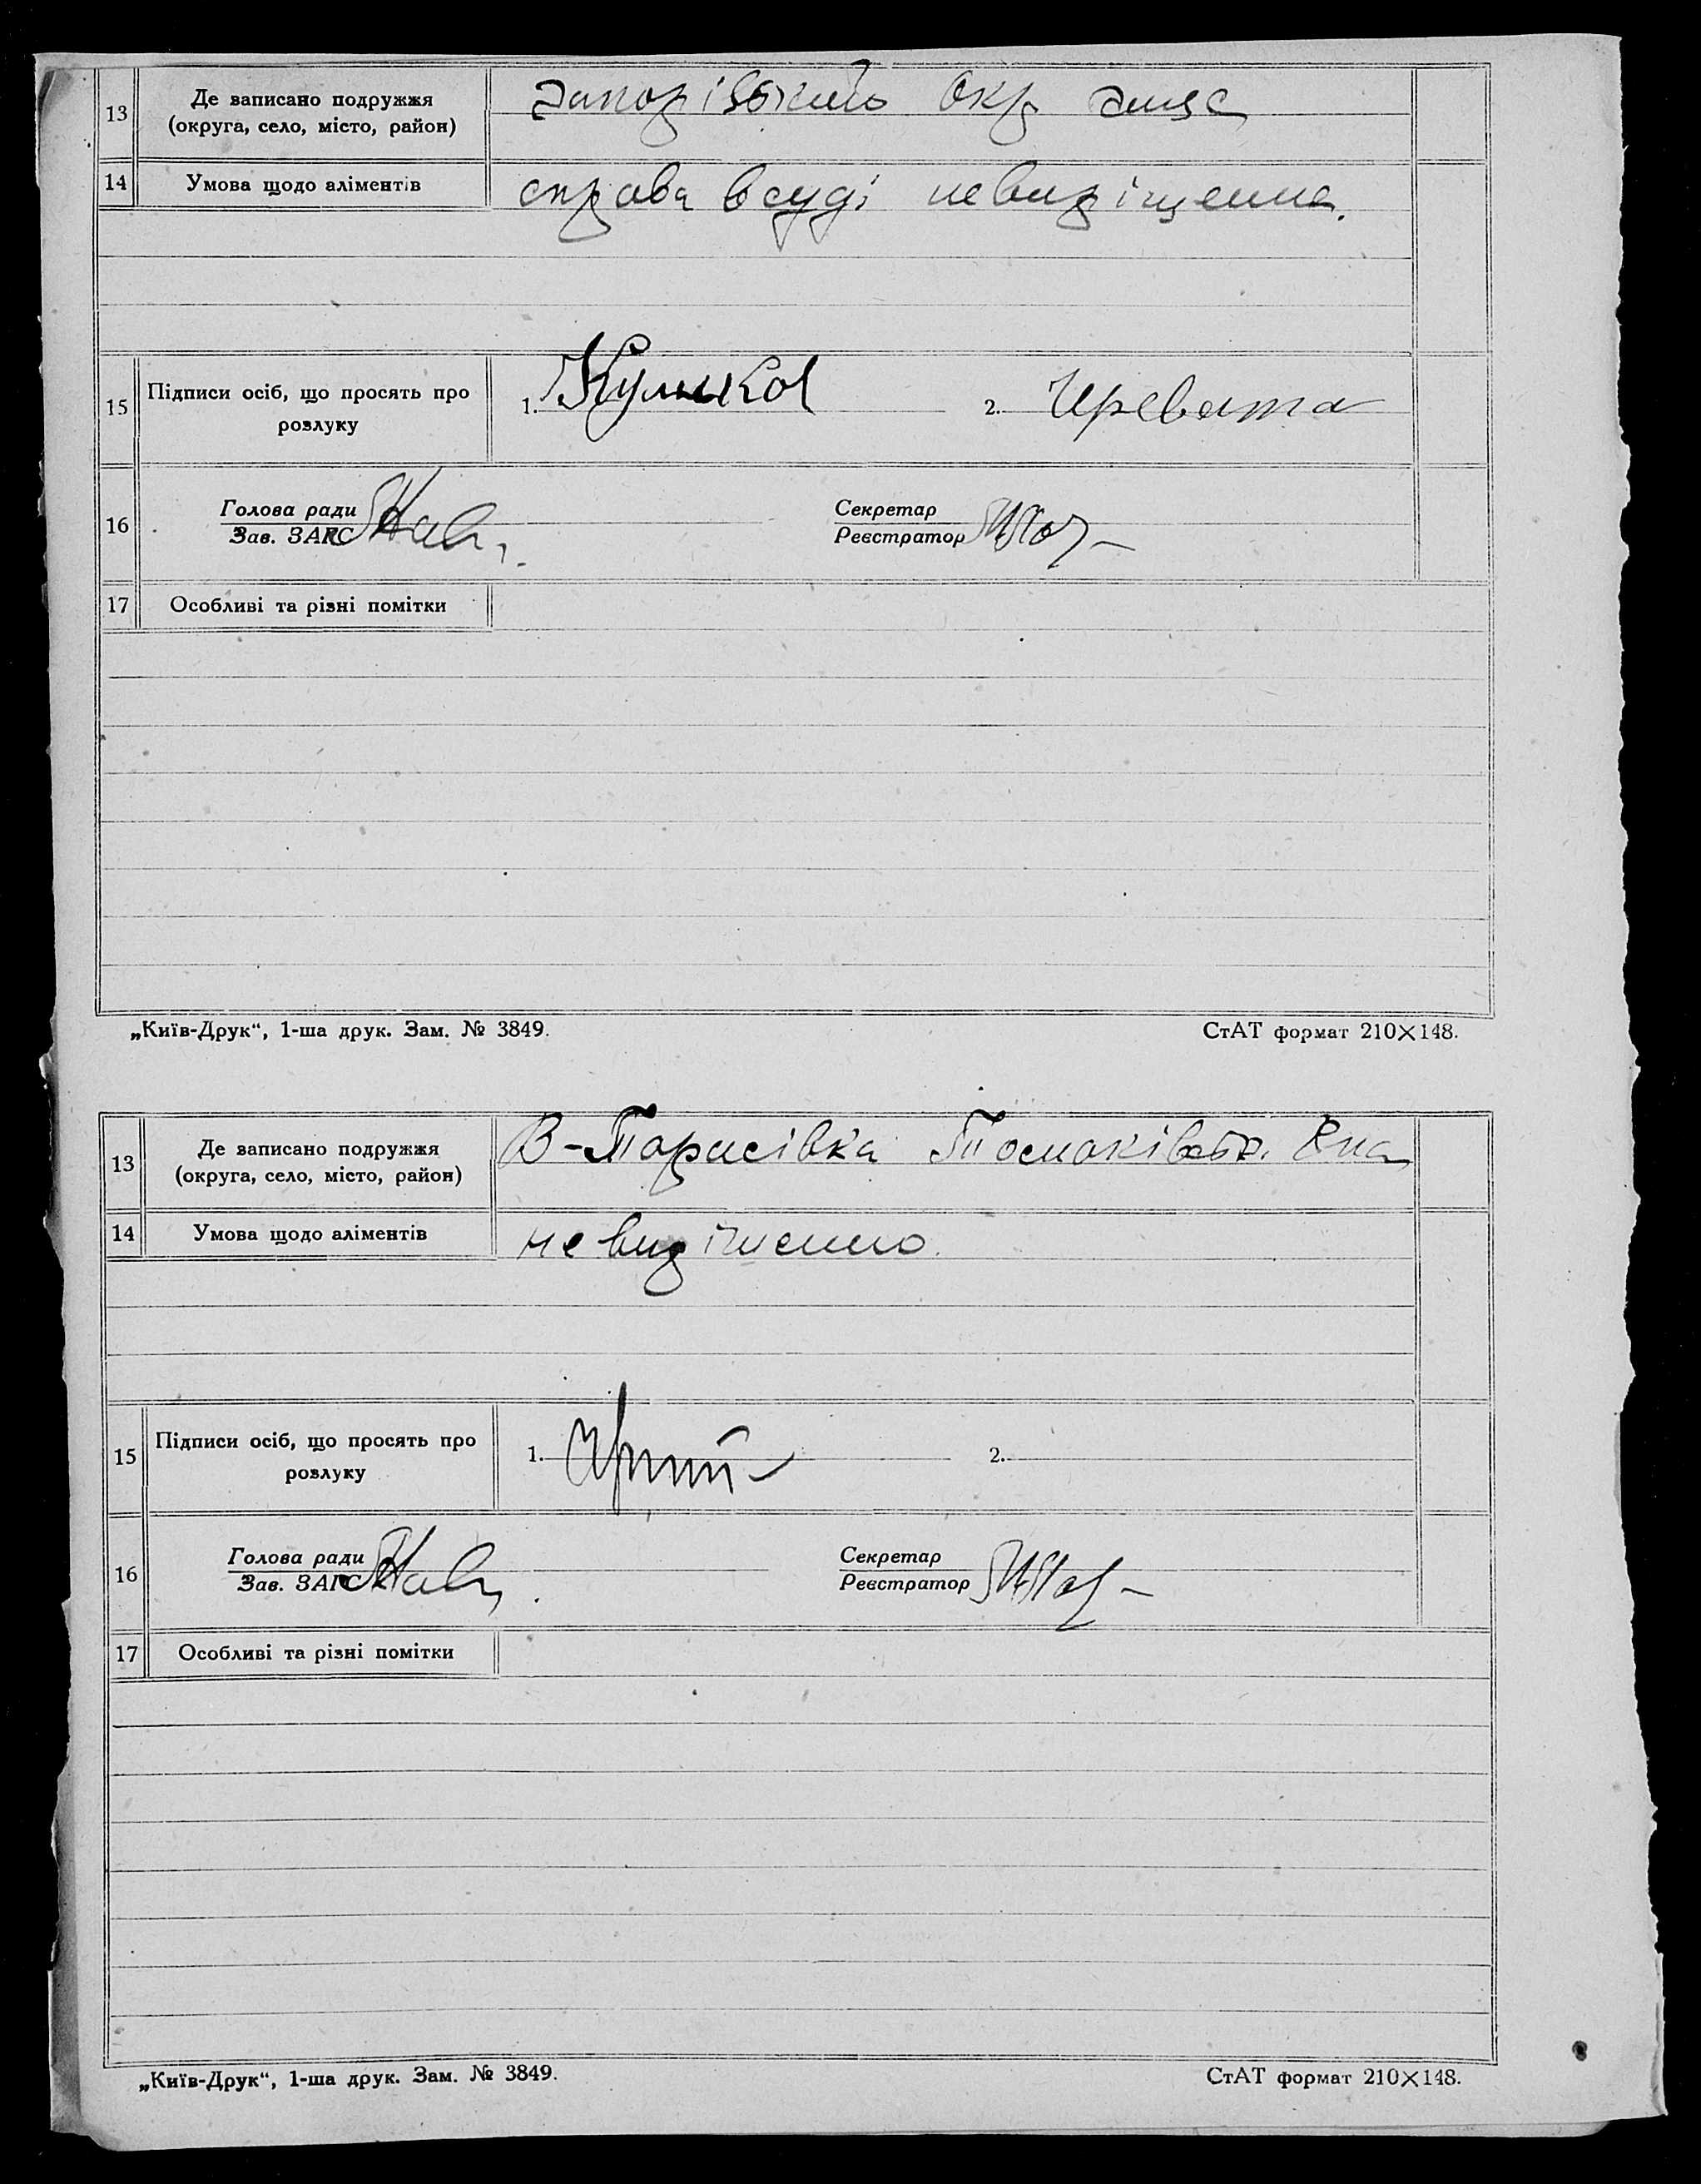 13 Де записано подружжя Запорізьким Окр Загс
(округа, село, місто, район)
14 Умова щодо аліментів справа в суді невирішенна.
15 Підписи осіб, що просять про розлуку 1. Куликов 2. Чревата
16 Голова ради Секретар
Зав. ЗАГС Реєстратор
17 Особливі та різні помітки
„Київ-Друк“, 1-ша друк. Зам. № 3849. СтАТ формат 210×148.
13 Де записано подружжя В-Тарасівка Томаківськ. Р-на
(округа, село, місто, район)
14 Умова щодо аліментів невирішенно.
15 Підписи осіб, що просять про розлуку 1. 2.
16 Голова ради Секретар
Зав. ЗАГС Реєстратор
17 Особливі та різні помітки
„Київ-Друк“, 1-ша друк. Зам. № 3849. СтАТ формат 210×148.